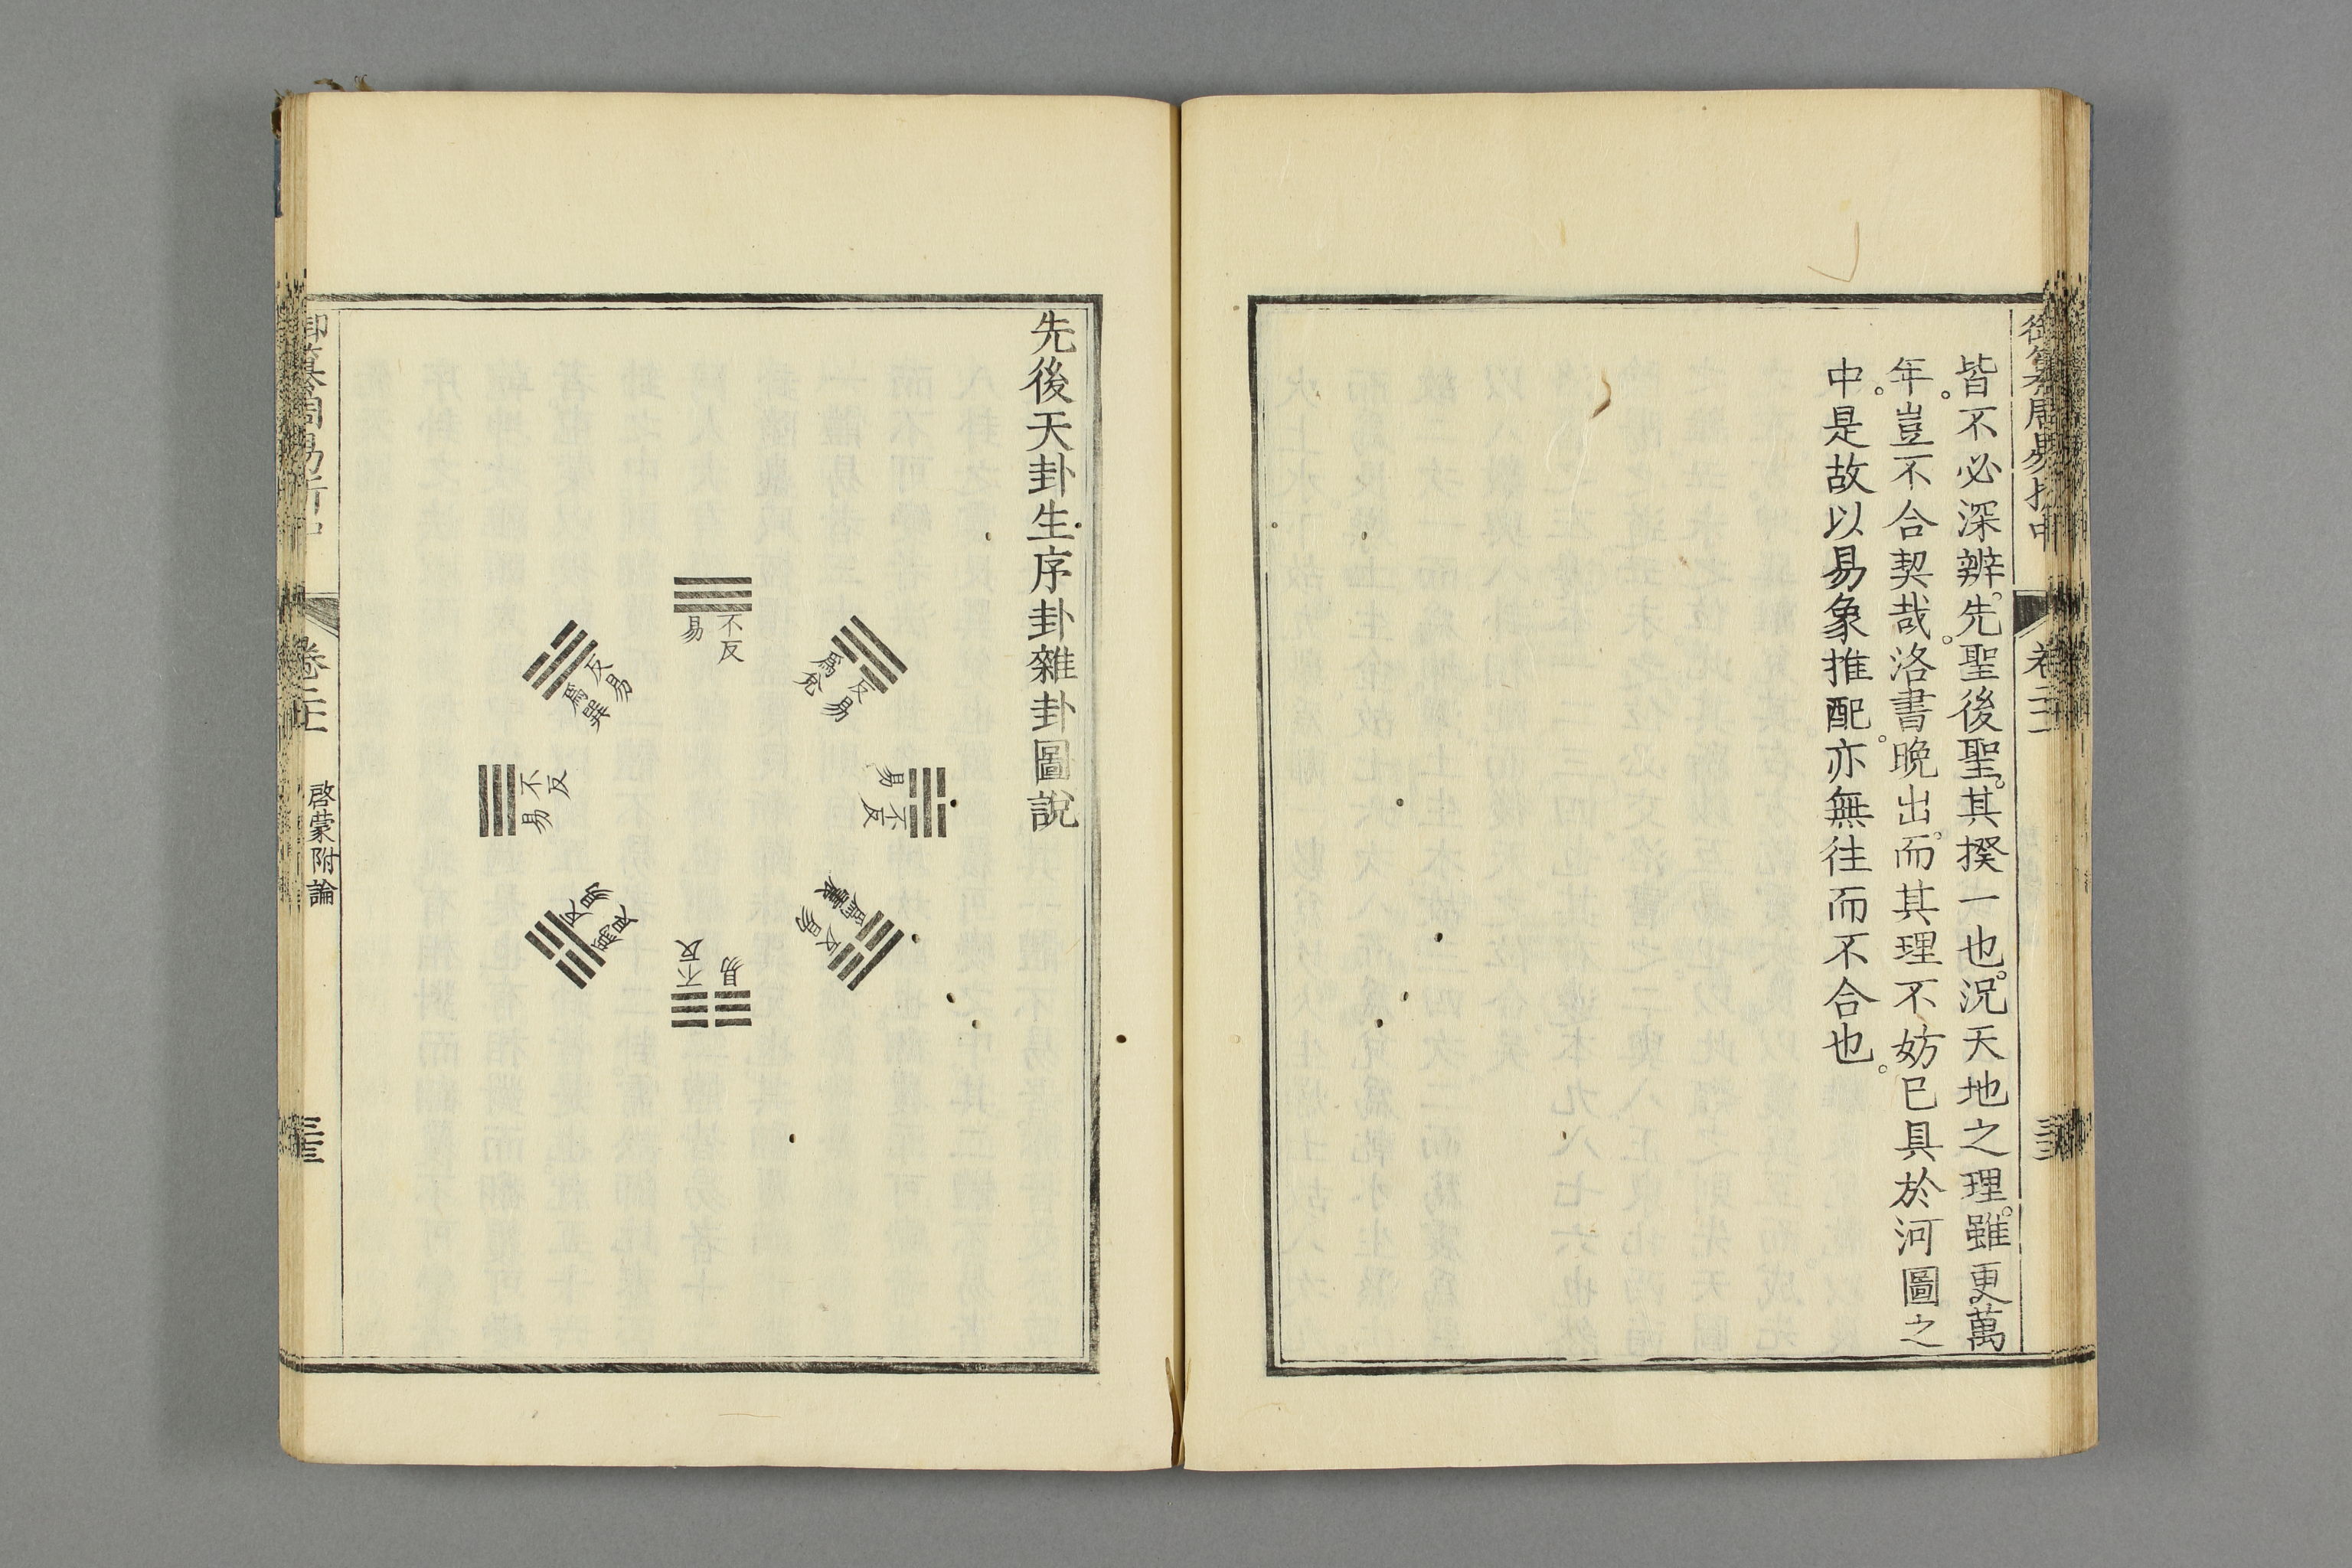 御纂周易折中
卷二
皆不必深辨。先聖後聖。其揆一也。況天地之理。雖更萬
年。豈不合契哉。洛書晚出。而其理不妨已具於河圖之
中。是故以易象推配。亦無往而不合也。
先後天卦生序卦雜卦圖說
不反
易
反易
爲兌
不反
易
反易
爲震
不反
易
反易
爲艮
不反
易
反易
爲巽
御纂周易折中
卷二
啓蒙附論